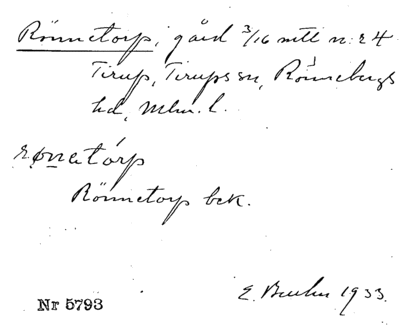 Rönnetorp, gård 3/16 mtl nr 4
Tirup, Tirups sn, Rönnebergs
hd, Mlm. l.
rønatórp
Rönnetorp bek.
E. 1933.
Nr 5793